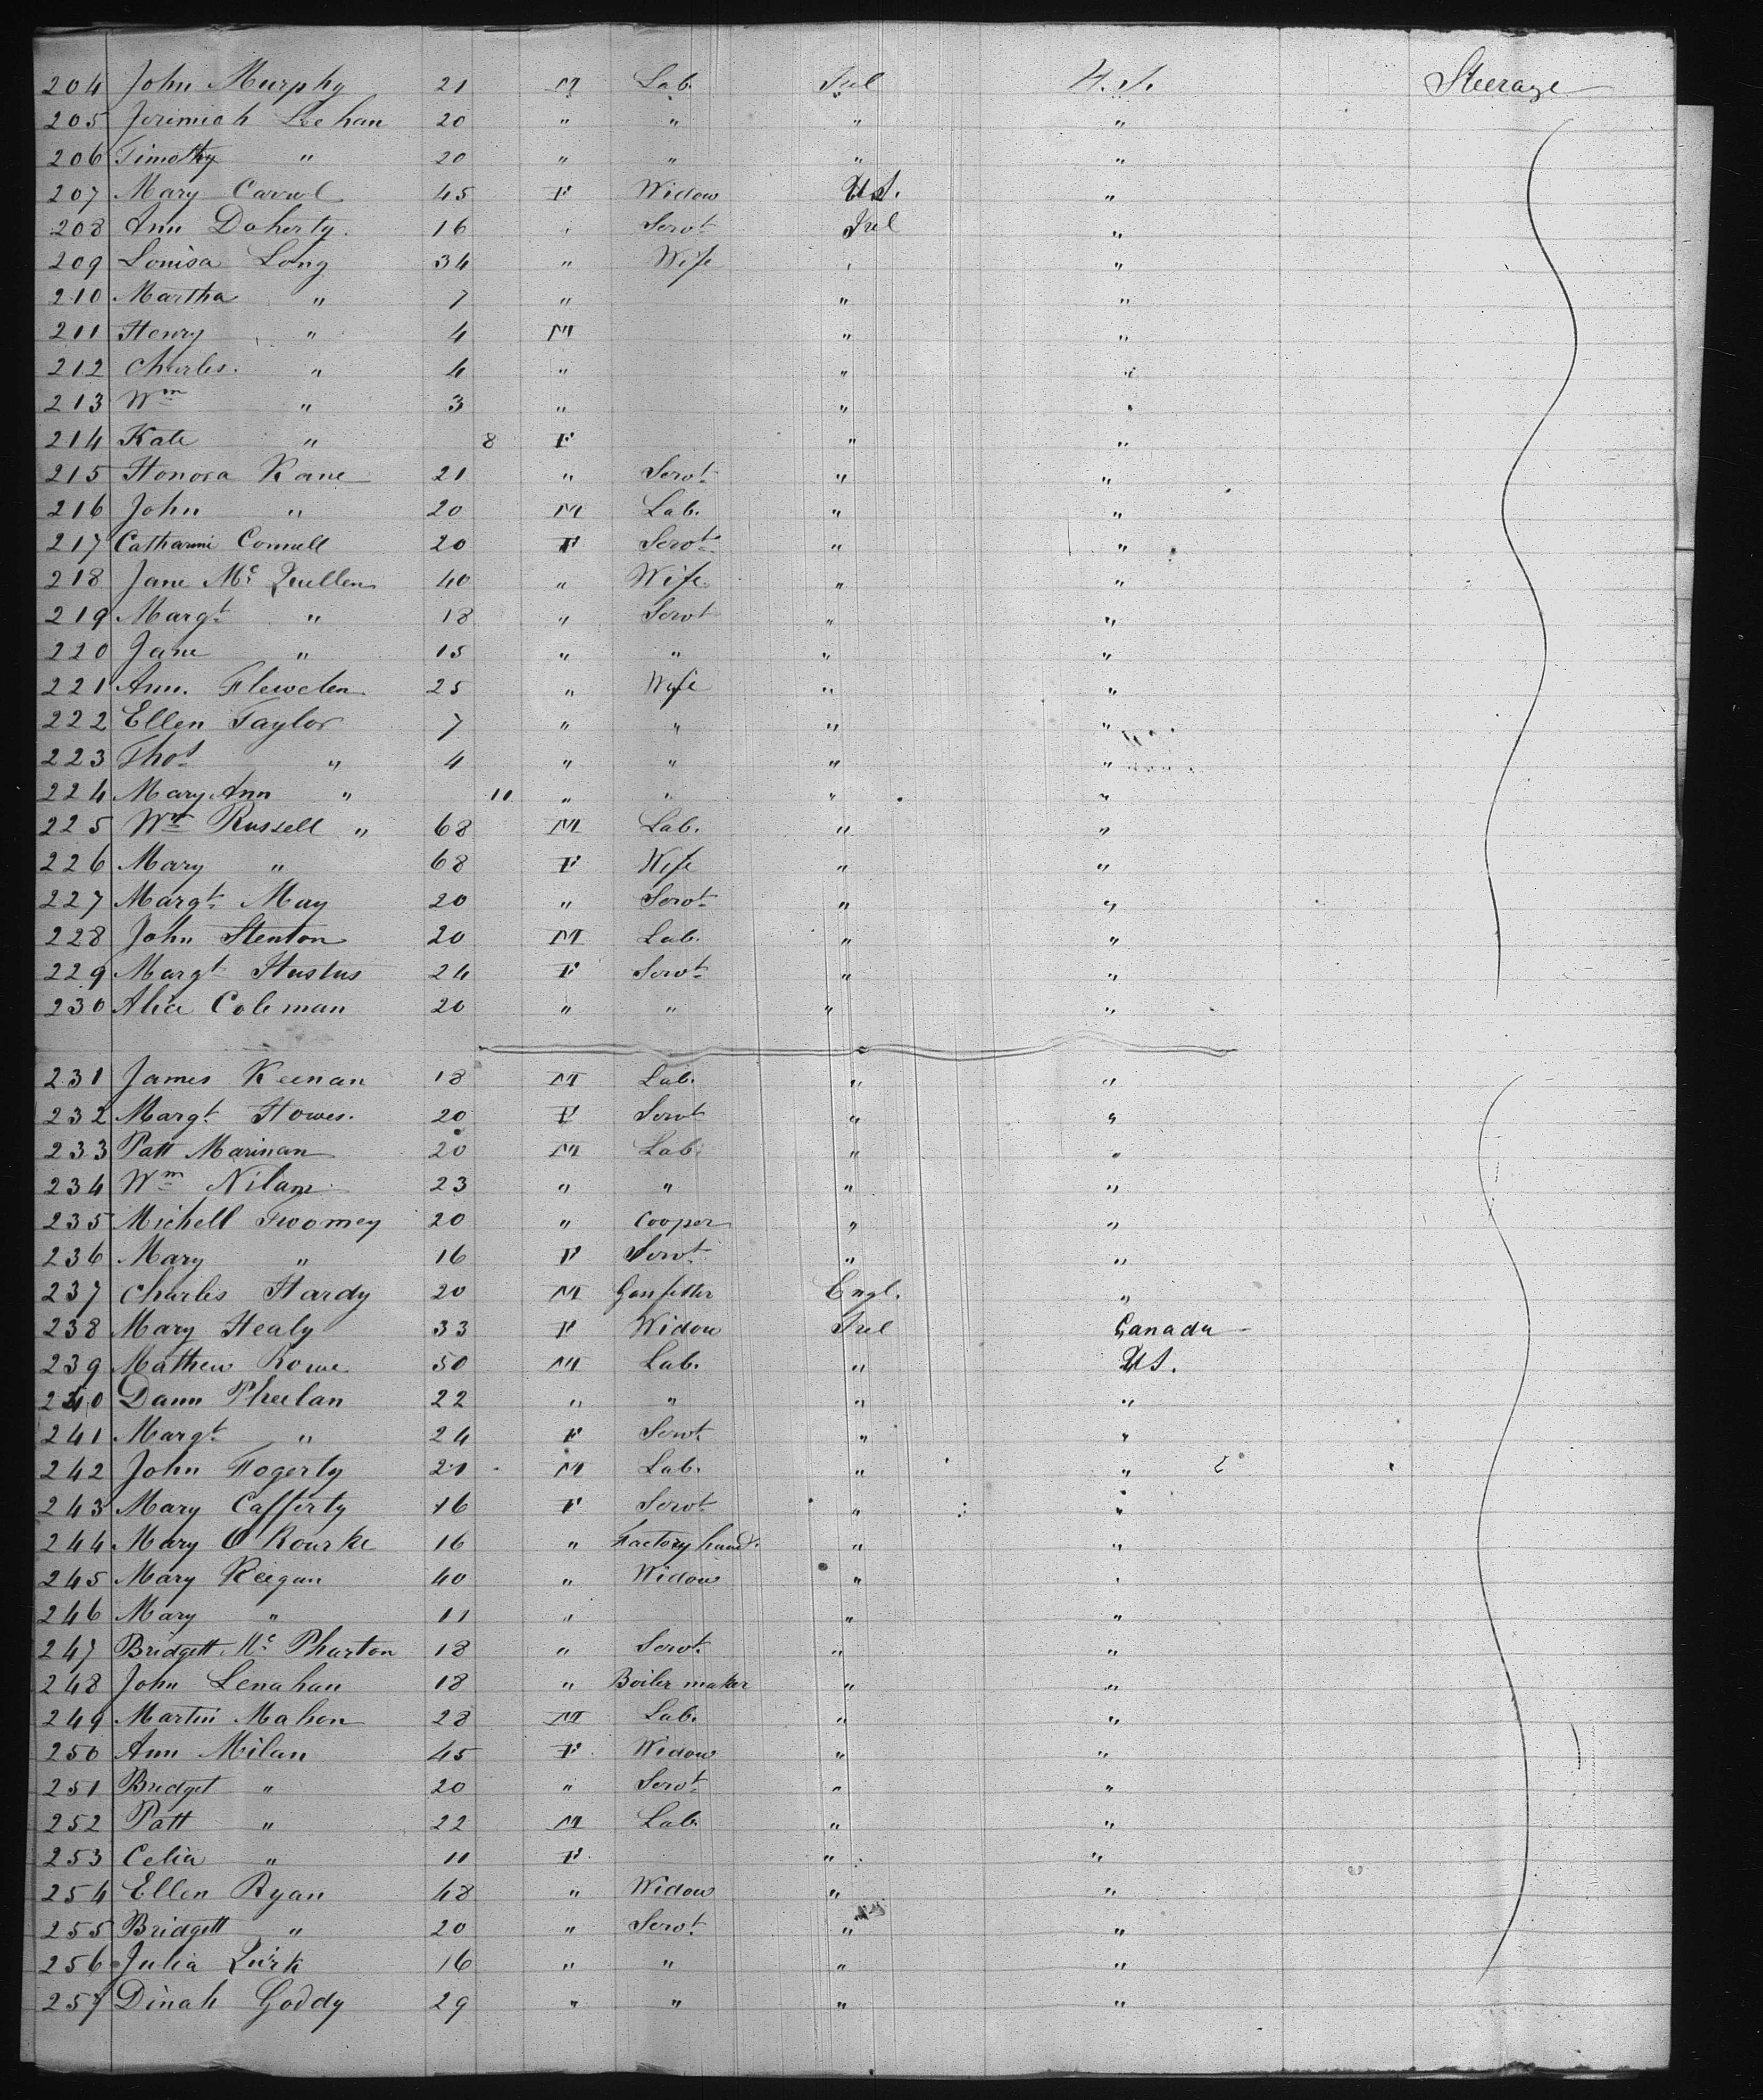 204 John Murphy 21 M Lab. Irel U.S. Steerage
205 Jerimiah Leehan 20 " " " "
206 Timothy " 20 " " " "
207 Mary Carrol 45 F Widow U.S. "
208 Ann Doherty. 16 " Servt Irel "
209 Louisa Long 34 " Wife " "
210 Martha " 7 " " "
211 Henry " 4 M " "
212 Charles. " 4 " " "
213 Wm " 3 " " "
214 Kate " 8 F " "
215 Honora Kane 21 " Servt " "
216 John " 20 M Lab. " "
217 Catharine Connell 20 F Servt " "
218 Jane Mc Quillen 40 " Wife " "
219 Margt " 18 " Servt " "
220 Jane " 15 " " " "
221 Ann. Flewelen 25 " Wife " "
222 Ellen Taylor 7 " " " "
223 Thos " 4 " " " "
224 Mary Ann " 11 " " " "
225 Wm Russell " 68 M Lab. " "
226 Mary " 68 F Wife " "
227 Margt May 20 " Servt " "
228 John Stenton 20 M Lab. " "
229 Margt Hustus 24 F Servt " "
230 Alice Coleman 20 " " " "
231 James Keenan 18 M Lab. " "
232 Margt Howes. 20 F Servt " "
233 Patt Marinan 20 M Lab. " "
234 Wm Nilan 23 " " " "
235 Michell Twomey 20 " Cooper " "
236 Mary " 16 F Servt " "
237 Charles Hardy 20 M Gasfitter Engl. "
238 Mary Healy 33 F Widow Irel Canada
239 Mathew Rowe 50 M Lab. " U.S.
240 Dann Pheelan 22 " " " "
241 Margt " 24 F Servt " "
242 John Fogerty 21 M Lab. " "
243 Mary Cafferty 16 F Servt " "
244 Mary O'Rourke 16 " Factory hand. " "
245 Mary Reegan 40 " Widow " "
246 Mary " 11 " " "
247 Bridgett Mc Pharton 18 " Servt. " "
248 John Lenahan 18 " Boiler maker " "
249 Martin Mahon 28 M Lab. " "
250 Ann Milan 45 F Widow " "
251 Bridget " 20 " Servt " "
252 Patt " 22 M Lab. " "
253 Celia " 11 F " "
254 Ellen Ryan 48 " Widow " "
255 Bridgett " 20 " Servt. " "
256 Julia Quirk 16 " " " "
257 Dinah Goddy 29 " " " "